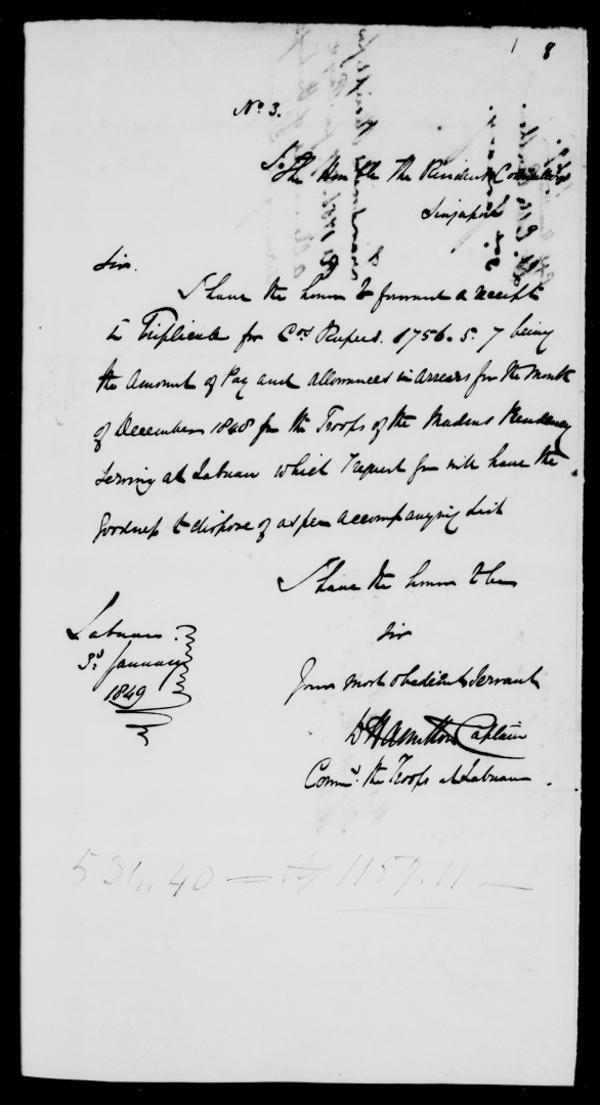 1 8
No. 3.
To The Honble The Resident Councillor
Singapore
Sir.
I have the honor to forward a receipt
in Triplicate for Cos Rupees. 1756. 5. 7 being
the Amount of Pay and allowances in arrears for the Month
of December 1848 for the Troops of the Madras Presidency
Serving at Labuan which I request you will have the
goodness to dispose of as per accompanying List
I have the honor to be
Sir
Your most obedient Servant
Hamilton Captain
Commg. the Troops at Labuan.
Labuan
3d January
1849
1159.11